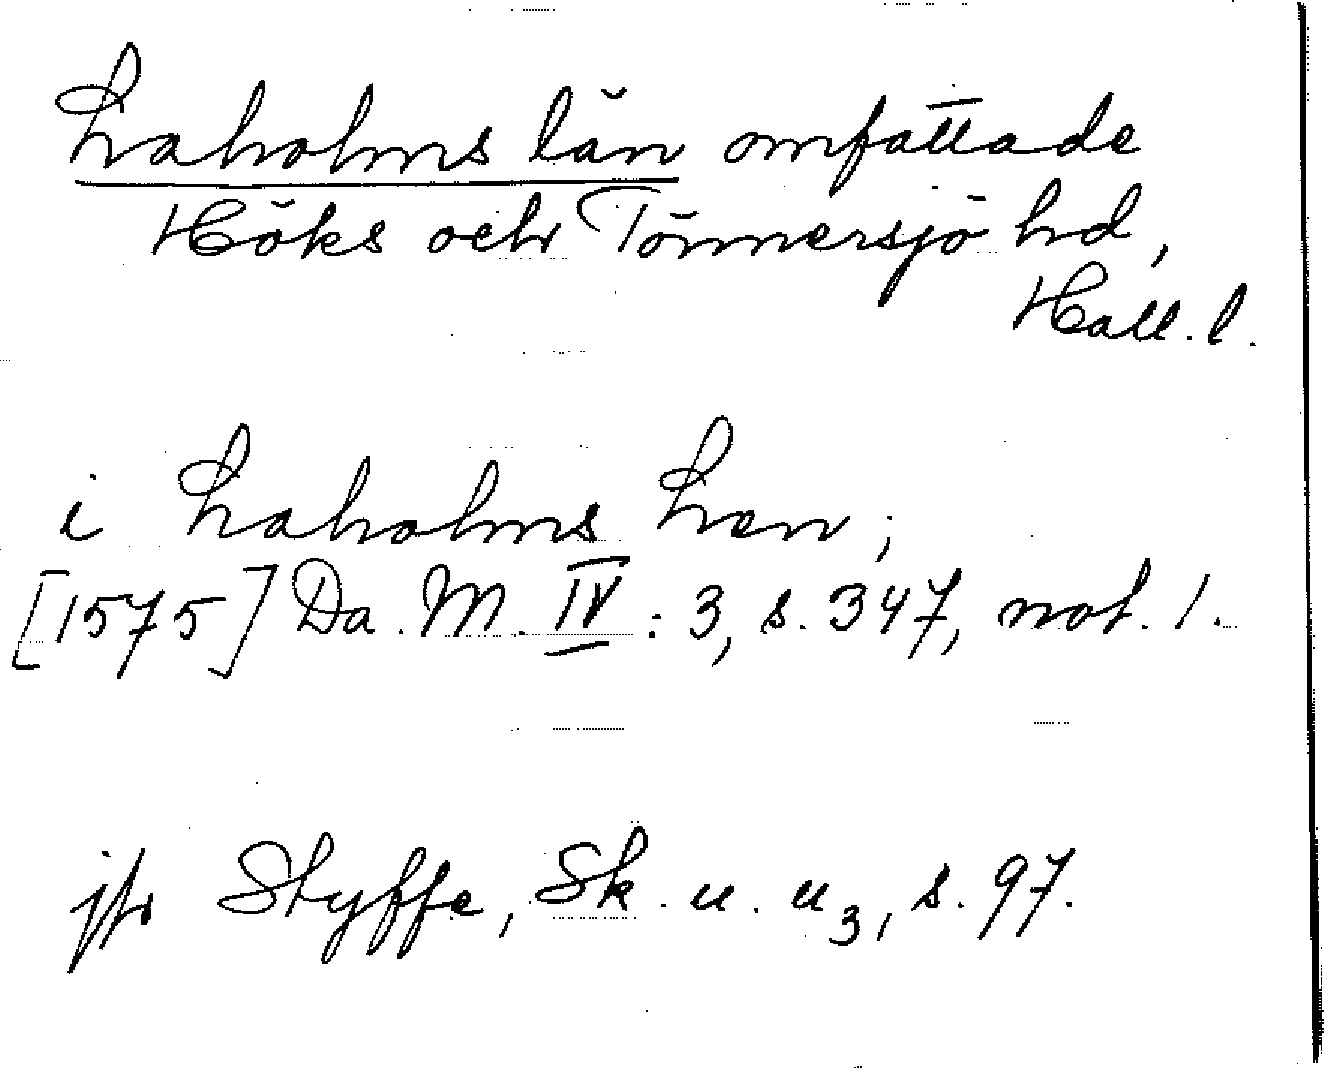 Laholms län omfattade
Höks och Tönnersjö hd,
Hall. l.
i Laholms Len;
[1575] Da. M. IV: 3, s. 347, not. 1.
jfr Styffe, Sk. u. u3, s. 97.